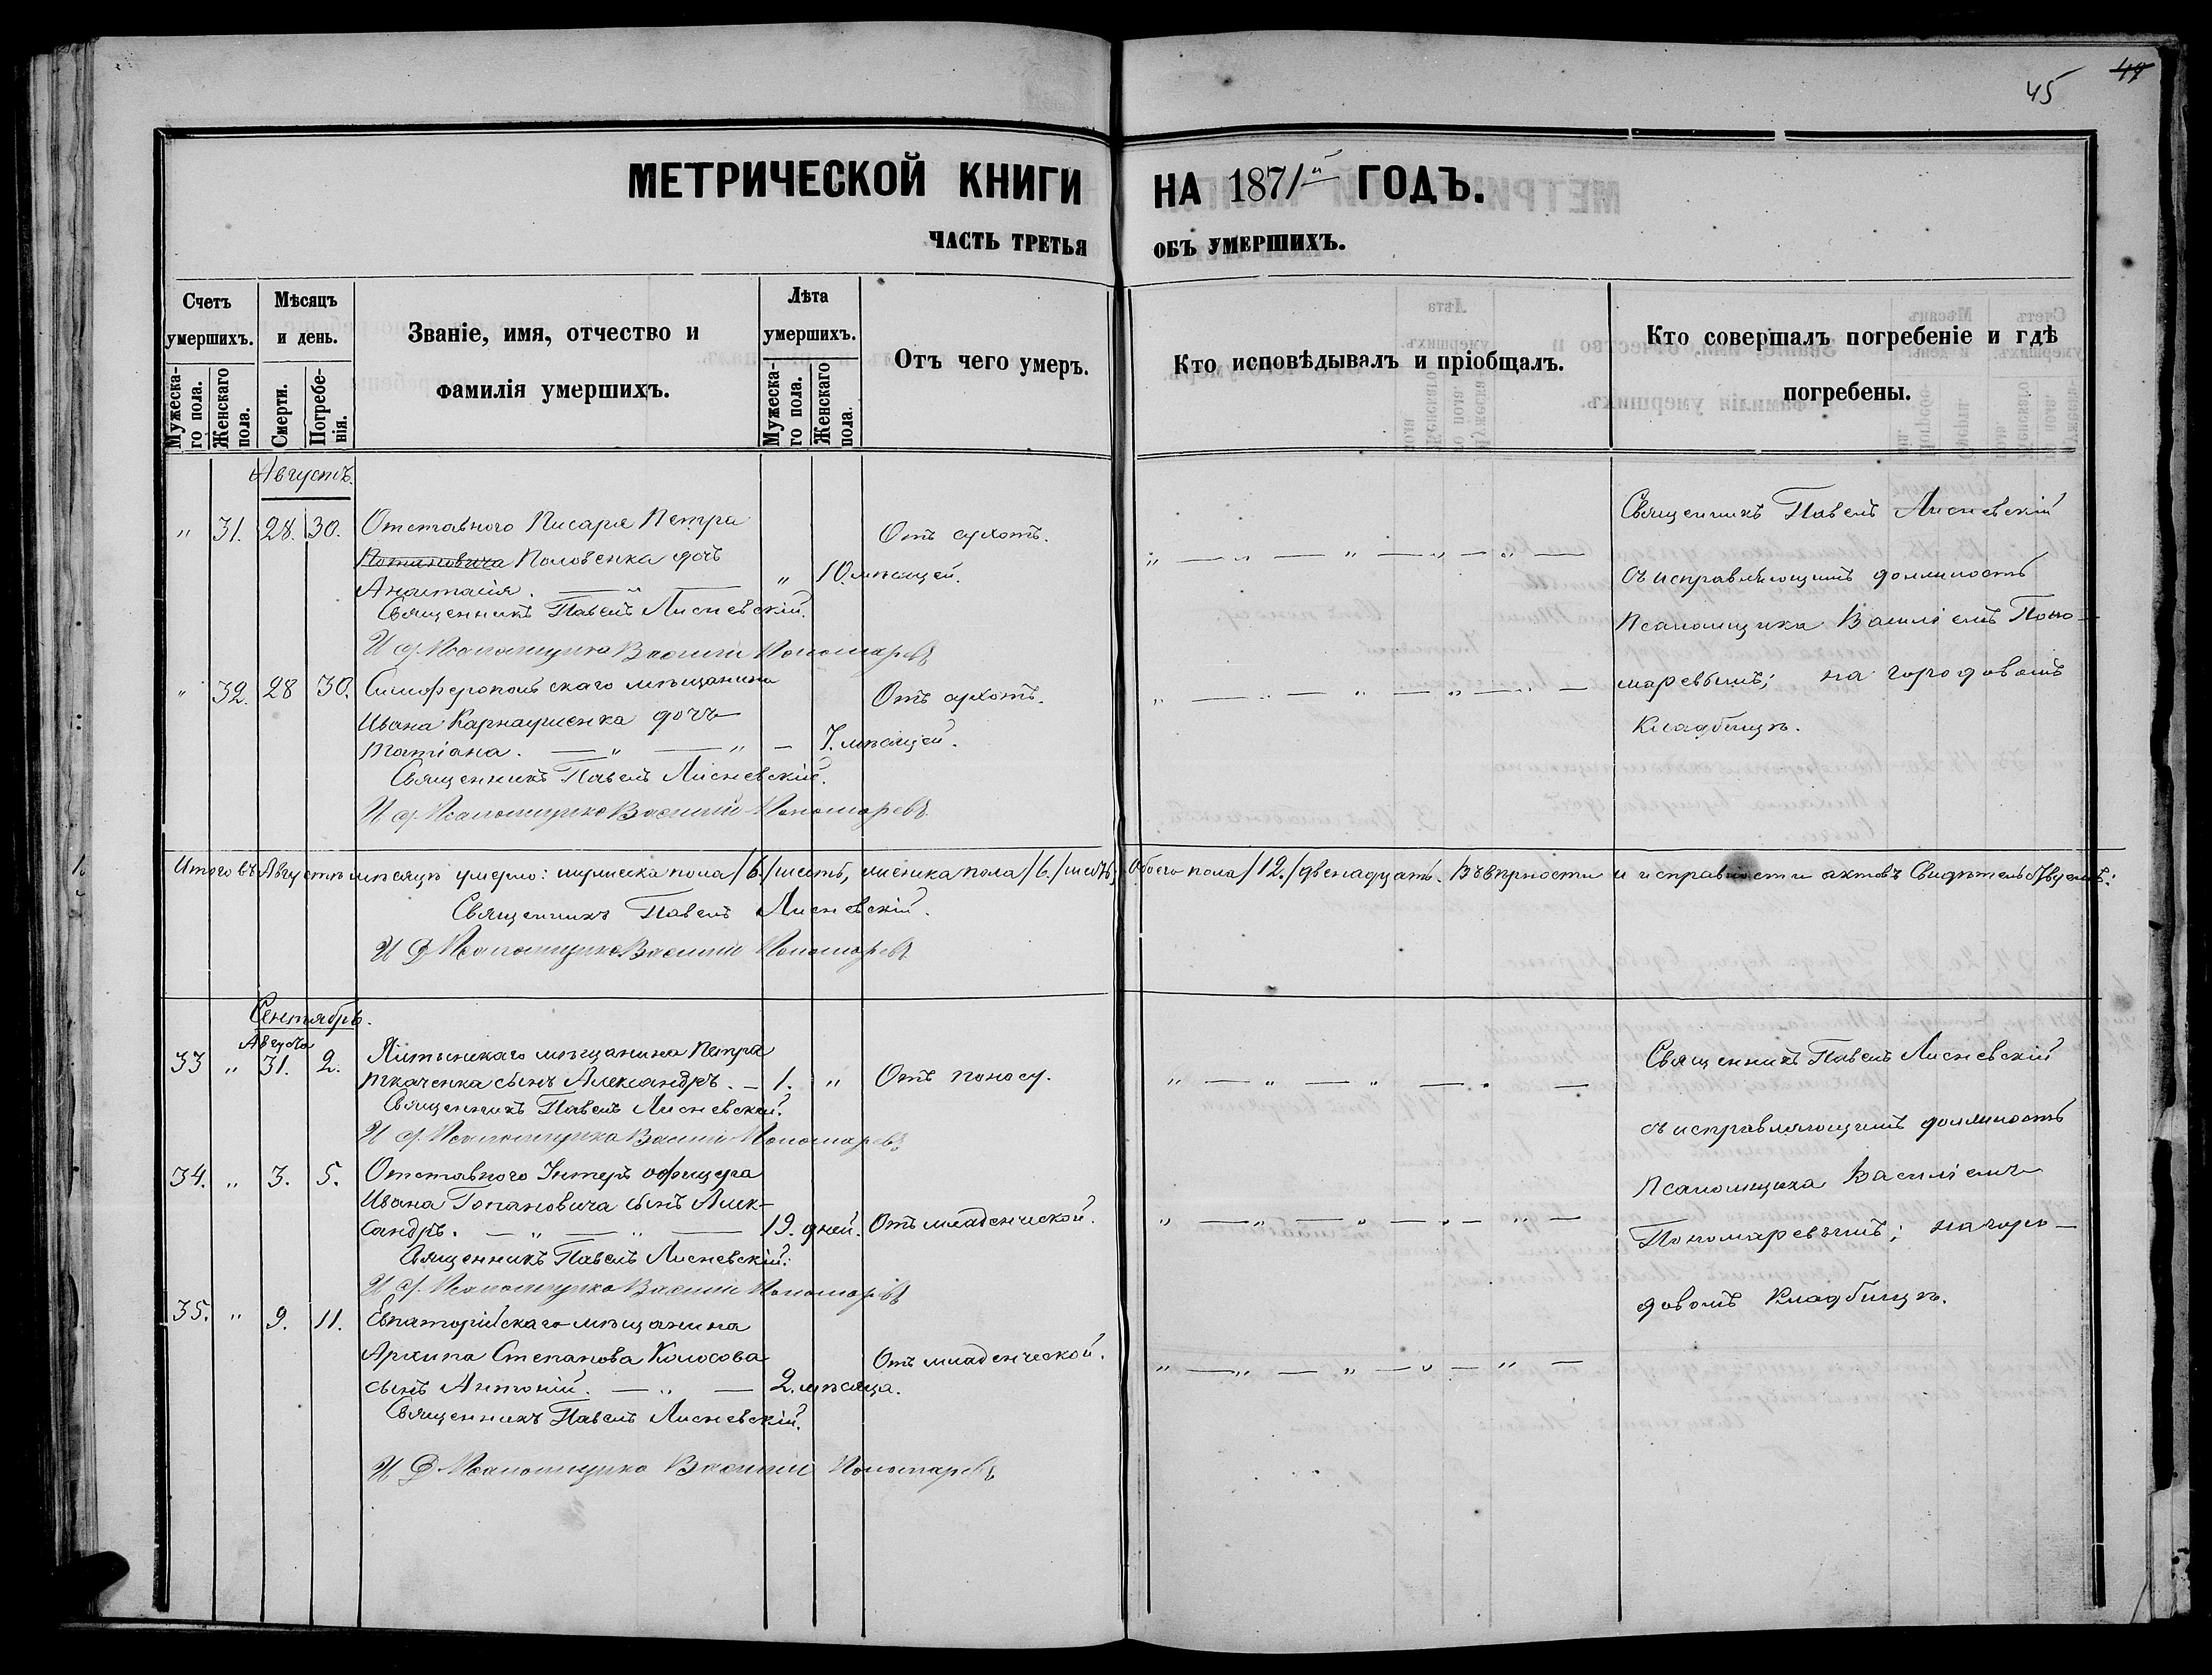 45 47
МЕТРИЧЕСКОЙ КНИГИ НА 1871й ГОДЪ.
ЧАСТЬ ТРЕТЬЯ ОБЪ УМЕРШИХЪ.
Счетъ умершихъ.
Мужескаго пола.
Женскаго пола.
Мѣсяцъ и день.
Смерти.
Погребенія.
Званіе, имя, отчество и фамилія умершихъ.
Лѣта умершихъ.
Мужескаго пола.
Женскаго пола.
Отъ чего умеръ.
Кто исповѣдывалъ и пріобщалъ.
Кто совершалъ погребеніе и гдѣ погребены.
Августъ.
" 31. 28. 30. Отставного Писаря Петра
Половенка дочь
Анастасія. — " — " 10. мѣсяцей. Отъ сухотъ.
Священникъ Павелъ Лисневскій.
И д. Псаломщика Василій Пономаревъ
" 32. 28 30. Симферопольскаго мѣщанина
Ивана Карнаушенка дочь
Татіана. — " — " — 7. мѣсяцей. Отъ сухотъ.
Священникъ Павелъ Лисневскій.
И д. Псаломщика Василій Пономаревъ
Священникъ Павелъ Лисневскій
съ исправляющимъ должность
Псаломщика Василіемъ Поно-
маревымъ; на городовомъ
Кладбищѣ.
Итого въ Августѣ мѣсяцѣ умерло: мужеска пола /6./ шесть, женска пола /6./ шесть, Обоего пола /12./ двенадцать. Въ вѣрности и исправности актовъ Свидѣтельствуемъ:
Священникъ Павелъ Лисневскій.
И Д Псаломщика Василій Пономаревъ
Сентябрь.
Августа
33 " 31. 2. Ялтинскаго мѣщанина Петра
Ткаченка сынъ Александръ. — 1. " Отъ поносу.
Священникъ Павелъ Лисневскій.
И д. Псаломщика Василій Пономаревъ
34. " 3. 5. Отставного Унтеръ офицера
Ивана Гопановича сынъ Алек-
сандръ. — " — " — 19. дней. Отъ младенческой.
Священникъ Павелъ Лисневскій.
И д. Псаломщика Василій Пономаревъ
35. " 9. 11. Евпаторійскаго мѣщанина
Архипа Степанова Колосова
сынъ Антоній. — " — 2. мѣсяца. Отъ младенческой.
Священникъ Павелъ Лисневскій.
И Д Псаломщика Василій Пономаревъ
Священникъ Павелъ Лисневскій
съ исправляющимъ должность
Псаломщика Василіемъ
Пономаревымъ; на горо-
довомъ Кладбищѣ.